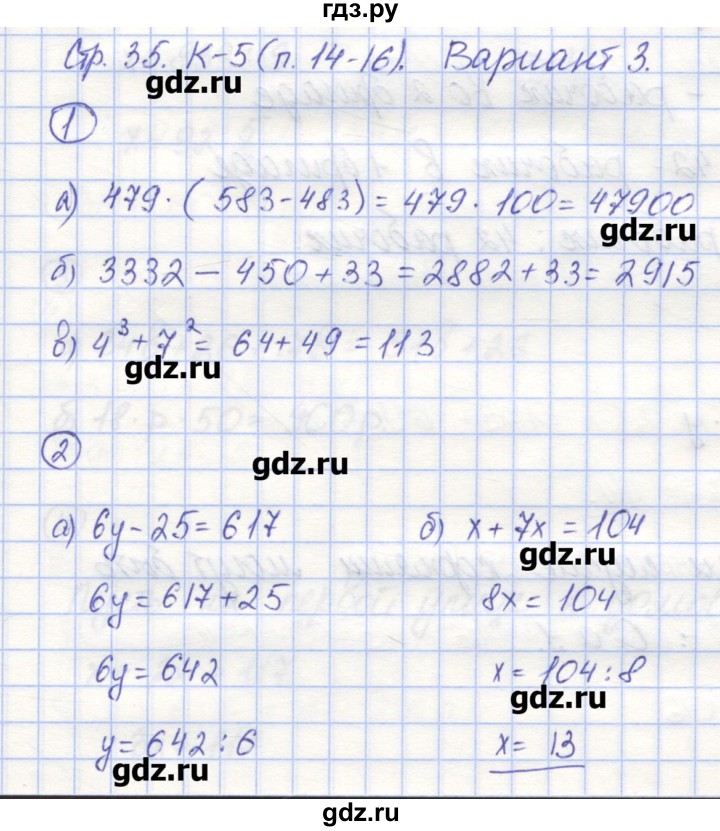 гдз.ру
Стр. 35. К-5 (п. 14-16). Вариант 3.
gdz.ru
1
а) 479 · ( 583 - 483) = 479 · 100 = 47900
gdz.ru
б) 3332 - 450 + 33 = 2882 + 33 = 2915
в) 4³ + 7² = 64 + 49 = 113
gdz.ru
2
gdz.ru
а) 6y - 25 = 617 б) x + 7x = 104
gdz.ru
6y = 617 + 25 8x = 104
6y = 642 x = 104 : 8
gdz.ru
y = 642 : 6 x = 13
gdz.ru
gdz.ru